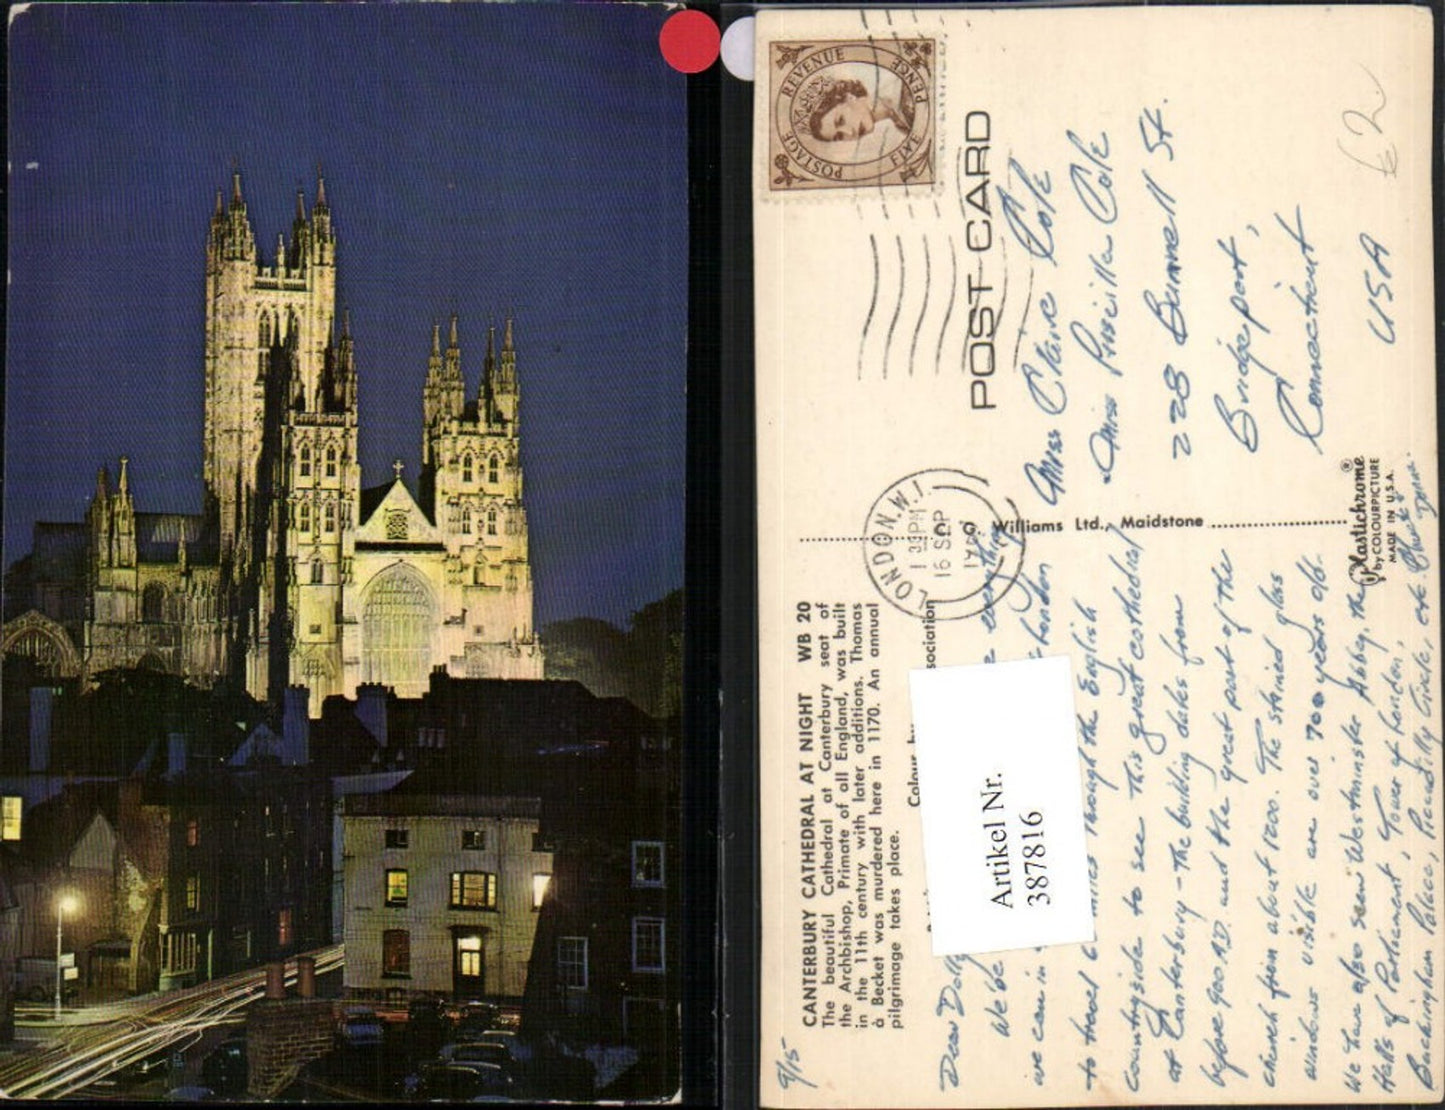 REVENUE
POSTAGE
FIVE PENCE
POST CARD
LONDON. W.1.
1 PM
16 SEP
CANTERBURY CATHEDRAL AT NIGHT WB 20
The beautiful Cathedral at Canterbury seat of
the Archbishop, Primate of all England, was built
in the 11th century with later additions. Thomas
à Becket was murdered here in 1170. An annual
pilgrimage takes place.
Colour by
sociation
Williams Ltd., Maidstone
Plastichrome ®
by COLOURPICTURE
MADE IN U.S.A.
Artikel Nr.
387816
€2
Miss Claire Cole
Miss Priscilla Cole
228 Bunnell St.
Bridgeport,
Connecticut
USA
9/15
Dear Dolly
We've everything
we can in London
to travel miles through the English
countryside to see this great cathedral
at Canterbury - the building dates from
before 900 A.D. and the great part of the
church from about 1200. The stained glass
windows visible are over 700 years old.
We have also seen Westminster Abbey, the
Halls of Parliment, Tower of London,
Buckingham Palace, Piccadilly Circle, etc.